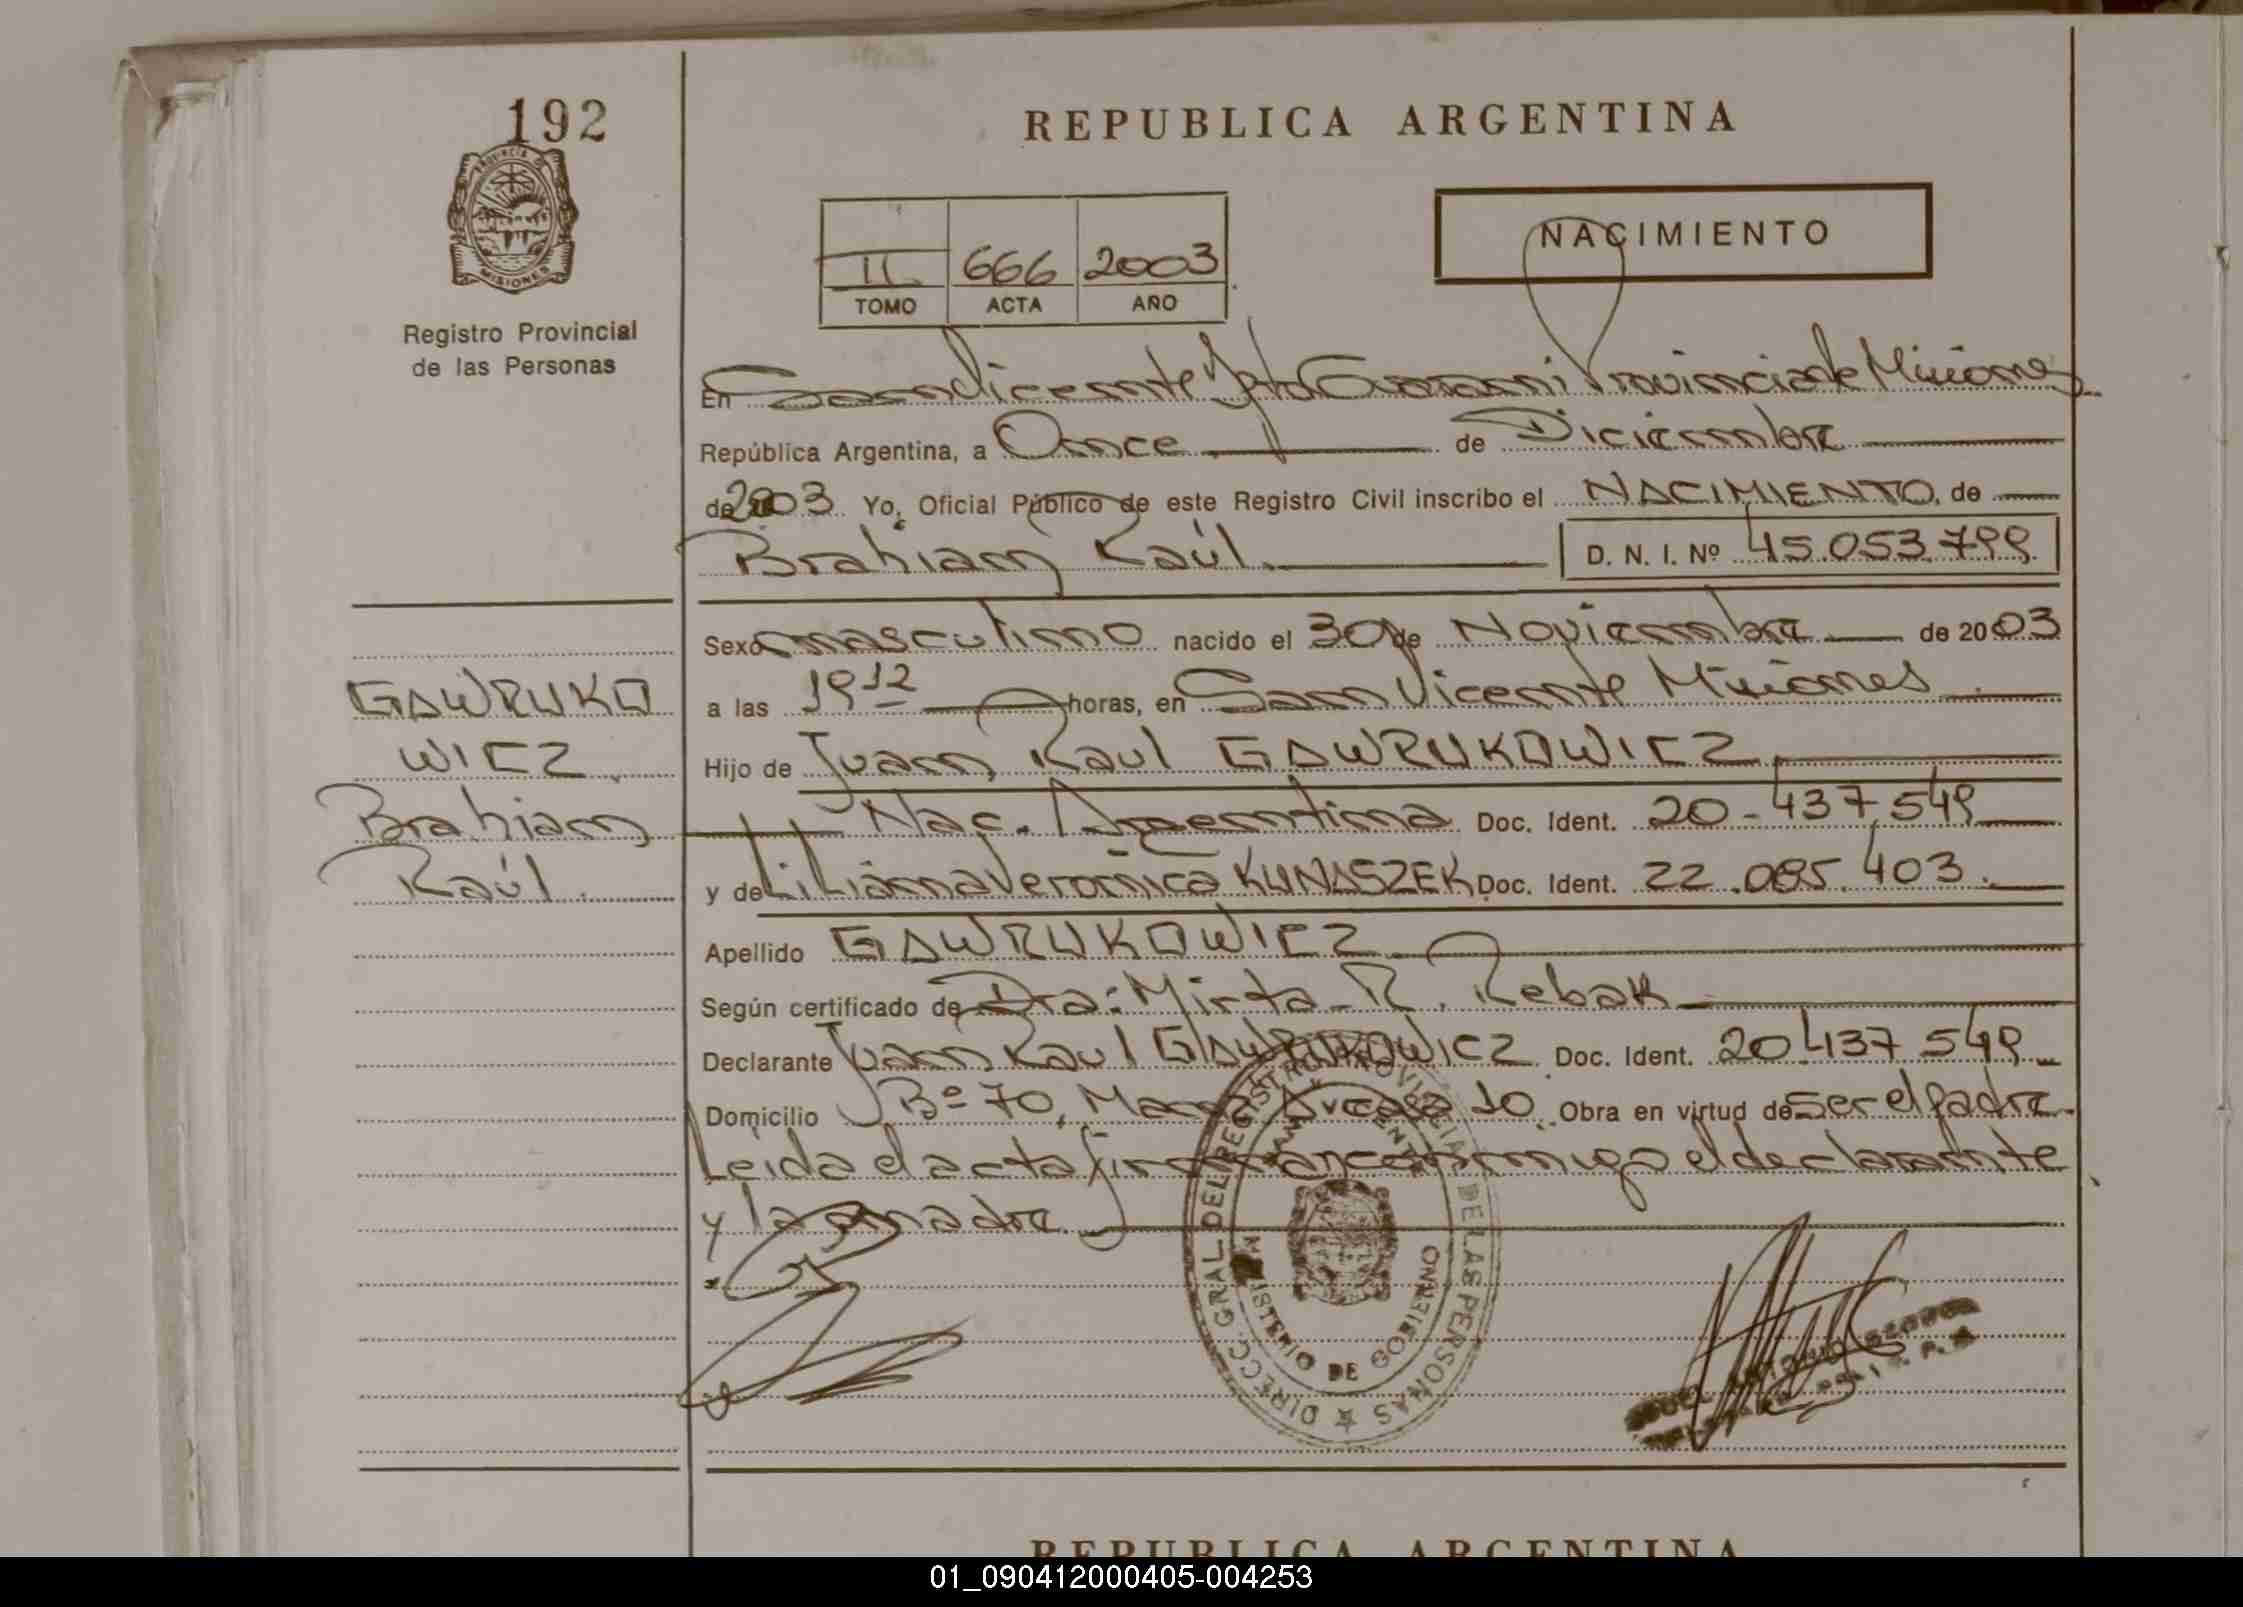 192
PROVINCIA DE
MISIONES
Registro Provincial
de las Personas
GAWRUKO
WICZ
Brahiam
Raúl
REPUBLICA ARGENTINA
NACIMIENTO
II 666 2003
TOMO ACTA AÑO
En San Vicente Dpto Guaraní Provincia de Misiones
República Argentina, a Once de Diciembre
de 2003 Yo, Oficial Público de este Registro Civil inscribo el NACIMIENTO, de
Brahiam Raúl. D. N. I. Nº 45.053.799
Sexo masculino nacido el 30 de Noviembre de 2003
a las 19 12 horas, en San Vicente Misiones
Hijo de Juan Raul GAWRUKOWICZ
Nac. Argentina Doc. Ident. 20-437.549
y de Liliana Veronica KUNASZEK Doc. Ident. 22.085.403.
Apellido GAWRUKOWICZ
Según certificado de Dra: Mirta R. Rebak
Declarante Juan Raul GAWRUKOWICZ Doc. Ident. 20437549
Domicilio Bº 70, Manz 10 Obra en virtud de Ser el padre
Leida el acta firman conmigo el declarante
y la madre.
DIRECC. GRAL. DEL REGISTRO PROVINCIAL DE LAS PERSONAS
SAN VICENTE
MINISTERIO DE GOBIERNO
REPUBLICA ARGENTINA
01_090412000405-004253